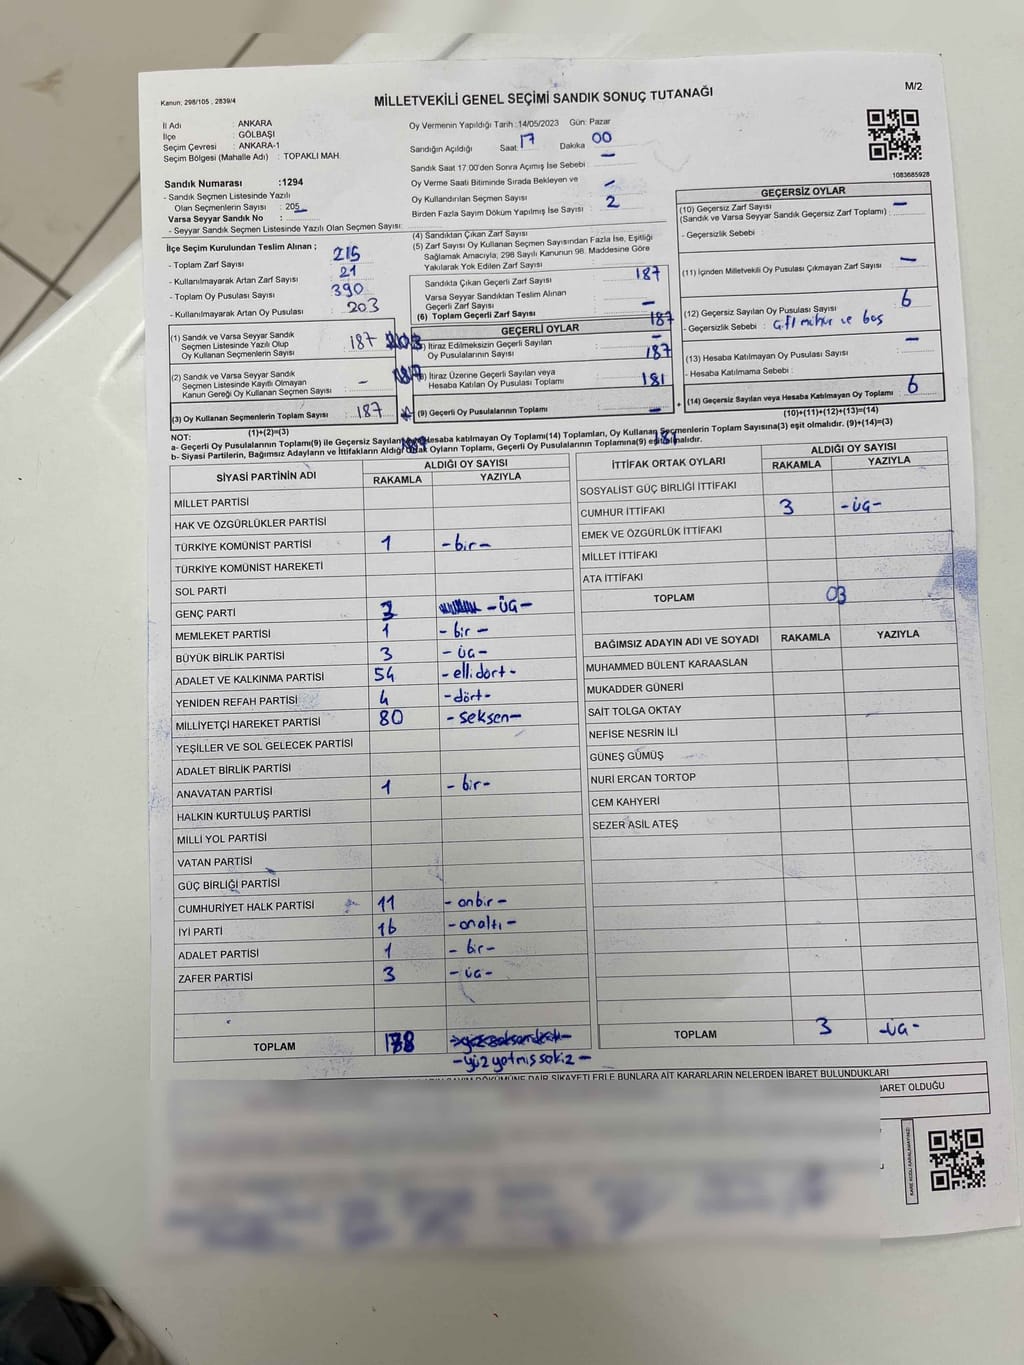 Kanun, 298/105 , 2839/4
MİLLETVEKİLİ GENEL SEÇİMİ SANDIK SONUÇ TUTANAĞI
M/2
İl Adı : ANKARA
İlçe : GÖLBAŞI
Seçim Çevresi : ANKARA-1
Seçim Bölgesi (Mahalle Adı) : TOPAKLI MAH.
Oy Vermenin Yapıldığı Tarih :14/05/2023 Gün: Pazar
Sandığın Açıldığı Saat 17 Dakika 00
Sandık Saat 17.00'den Sonra Açımış İse Sebebi : —
Oy Verme Saati Bitiminde Sırada Bekleyen ve
Oy Kullandırılan Seçmen Sayısı : –
Birden Fazla Sayım Döküm Yapılmış İse Sayısı : 2
1083685928
Sandık Numarası :1294
- Sandık Seçmen Listesinde Yazılı
Olan Seçmenlerin Sayısı : 205
Varsa Seyyar Sandık No :
- Seyyar Sandık Seçmen Listesinde Yazılı Olan Seçmen Sayısı:
İlçe Seçim Kurulundan Teslim Alınan ;
- Toplam Zarf Sayısı : 215
- Kullanılmayarak Artan Zarf Sayısı : 21
- Toplam Oy Pusulası Sayısı : 390
- Kullanılmayarak Artan Oy Pusulası : 203
(1) Sandık ve Varsa Seyyar Sandık
Seçmen Listesinde Yazılı Olup
Oy Kullanan Seçmenlerin Sayısı : 187
(2) Sandık ve Varsa Seyyar Sandık
Seçmen Listesinde Kayıtlı Olmayan
Kanun Gereği Oy Kullanan Seçmen Sayısı : –
(3) Oy Kullanan Seçmenlerin Toplam Sayısı : 187
(1)+(2)=(3)
(4) Sandıktan Çıkan Zarf Sayısı
(5) Zarf Sayısı Oy Kullanan Seçmen Sayısından Fazla İse, Eşitliği
Sağlamak Amacıyla; 298 Sayılı Kanunun 98. Maddesine Göre
Yakılarak Yok Edilen Zarf Sayısı
Sandıkta Çıkan Geçerli Zarf Sayısı : 187
Varsa Seyyar Sandıktan Teslim Alınan
Geçerli Zarf Sayısı : —
(6) Toplam Geçerli Zarf Sayısı : 187
GEÇERLİ OYLAR
İtiraz Edilmeksizin Geçerli Sayılan
Oy Pusulalarının Sayısı : 187
İtiraz Üzerine Geçerli Sayılan veya
Hesaba Katılan Oy Pusulası Toplamı : 181
(9) Geçerli Oy Pusulalarının Toplamı : —
GEÇERSİZ OYLAR
(10) Geçersiz Zarf Sayısı : —
(Sandık ve Varsa Seyyar Sandık Geçersiz Zarf Toplamı)
- Geçersizlik Sebebi :
(11) İçinden Milletvekili Oy Pusulası Çıkmayan Zarf Sayısı : —
(12) Geçersiz Sayılan Oy Pusulası Sayısı : 6
- Geçersizlik Sebebi : çift mühür ve boş
(13) Hesaba Katılmayan Oy Pusulası Sayısı : —
- Hesaba Katılmama Sebebi :
(14) Geçersiz Sayılan veya Hesaba Katılmayan Oy Toplamı : 6
(10)+(11)+(12)+(13)=(14)
NOT:
a- Geçerli Oy Pusulalarının Toplamı(9) ile Geçersiz Sayılan Hesaba katılmayan Oy Toplamı(14) Toplamları, Oy Kullanan Seçmenlerin Toplam Sayısına(3) eşit olmalıdır. (9)+(14)=(3)
b- Siyasi Partilerin, Bağımsız Adayların ve İttifakların Aldığı Oyların Toplamı, Geçerli Oy Pusulalarının Toplamına(9)
SİYASİ PARTİNİN ADI ALDIĞI OY SAYISI
RAKAMLA YAZIYLA
MİLLET PARTİSİ
HAK VE ÖZGÜRLÜKLER PARTİSİ
TÜRKİYE KOMÜNİST PARTİSİ 1 -bir-
TÜRKİYE KOMÜNİST HAREKETİ
SOL PARTİ
GENÇ PARTİ 3 -üç-
MEMLEKET PARTİSİ 1 -bir-
BÜYÜK BİRLİK PARTİSİ 3 -üç-
ADALET VE KALKINMA PARTİSİ 54 -ellidört-
YENİDEN REFAH PARTİSİ 4 -dört-
MİLLİYETÇİ HAREKET PARTİSİ 80 -seksen-
YEŞİLLER VE SOL GELECEK PARTİSİ
ADALET BİRLİK PARTİSİ
ANAVATAN PARTİSİ 1 -bir-
HALKIN KURTULUŞ PARTİSİ
MİLLİ YOL PARTİSİ
VATAN PARTİSİ
GÜÇ BİRLİĞİ PARTİSİ
CUMHURİYET HALK PARTİSİ 11 -onbir-
İYİ PARTİ 16 -onaltı-
ADALET PARTİSİ 1 -bir-
ZAFER PARTİSİ 3 -üç-
TOPLAM 178
-yüz yetmiş sekiz-
İTTİFAK ORTAK OYLARI ALDIĞI OY SAYISI
RAKAMLA YAZIYLA
SOSYALİST GÜÇ BİRLİĞİ İTTİFAKI
CUMHUR İTTİFAKI 3 -üç-
EMEK VE ÖZGÜRLÜK İTTİFAKI
MİLLET İTTİFAKI
ATA İTTİFAKI
TOPLAM 03
BAĞIMSIZ ADAYIN ADI VE SOYADI RAKAMLA YAZIYLA
MUHAMMED BÜLENT KARAASLAN
MUKADDER GÜNERİ
SAİT TOLGA OKTAY
NEFİSE NESRİN İLİ
GÜNEŞ GÜMÜŞ
NURİ ERCAN TORTOP
CEM KAHYERİ
SEZER ASİL ATEŞ
TOPLAM 3 -üç-
DÖKÜMÜNE DAİR ŞİKAYETLERLE BUNLARA AİT KARARLARIN NELERDEN İBARET BULUNDUKLARI
BARET OLDUĞU